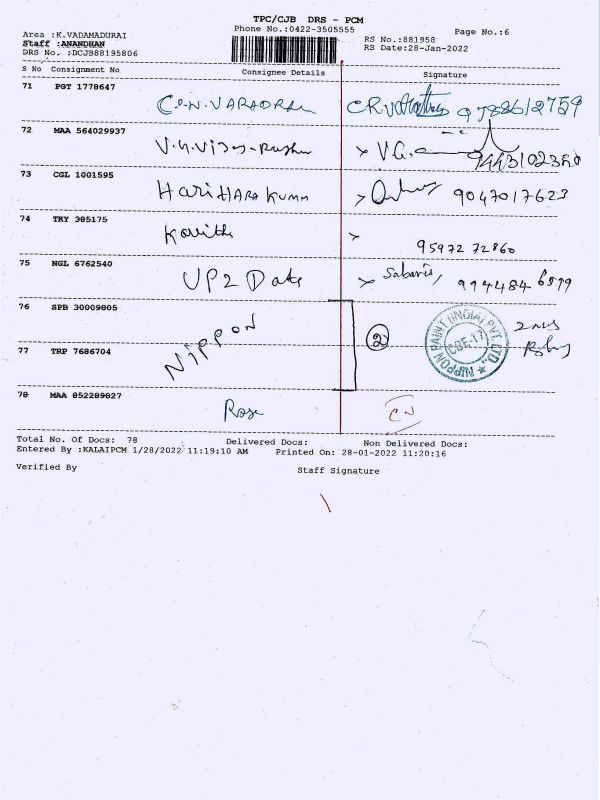 TPC/CJB DRS - PCM
Phone No.:0422-3505555
Page No.:6
Area :K.VADAMADURAI
Staff :ANANDHAN
DRS No. :DCJB88195806
RS No.:881958
RS Date:28-Jan-2022
S No Consignment No Consignee Details Signature
71 PGT 1778647
72 MAA 564029937
V.G.
73 CGL 1001595
HariHARA Kumar 9047017623
74 TKY 385175
Kavitha 95972 72860
75 NGL 6762540
UP2 Date Sabaris
76 SPB 30009805
NIPPON 2
NIPPON PAINT (INDIA) PVT. LTD.
CBE-17
77 TRP 7686704
78 MAA 852289827
Rose
Total No. Of Docs: 78 Delivered Docs: Non Delivered Docs:
Entered By :KALAIPCM 1/28/2022 11:19:10 AM Printed On: 28-01-2022 11:20:16
Verified By Staff Signature